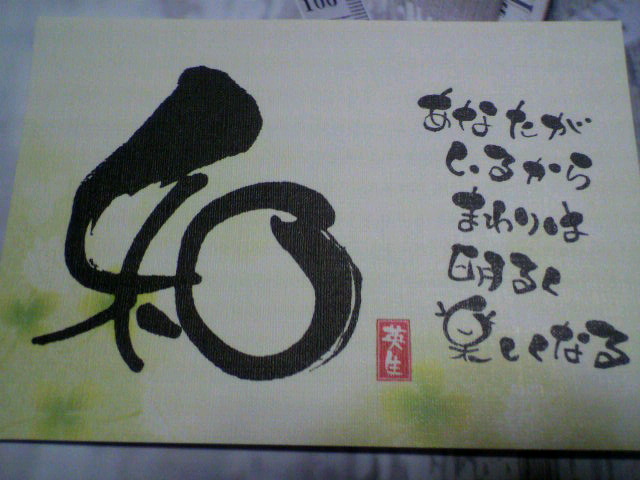 100
和
あなたが
いるから
まわりは
明るく
楽しくなる
英生